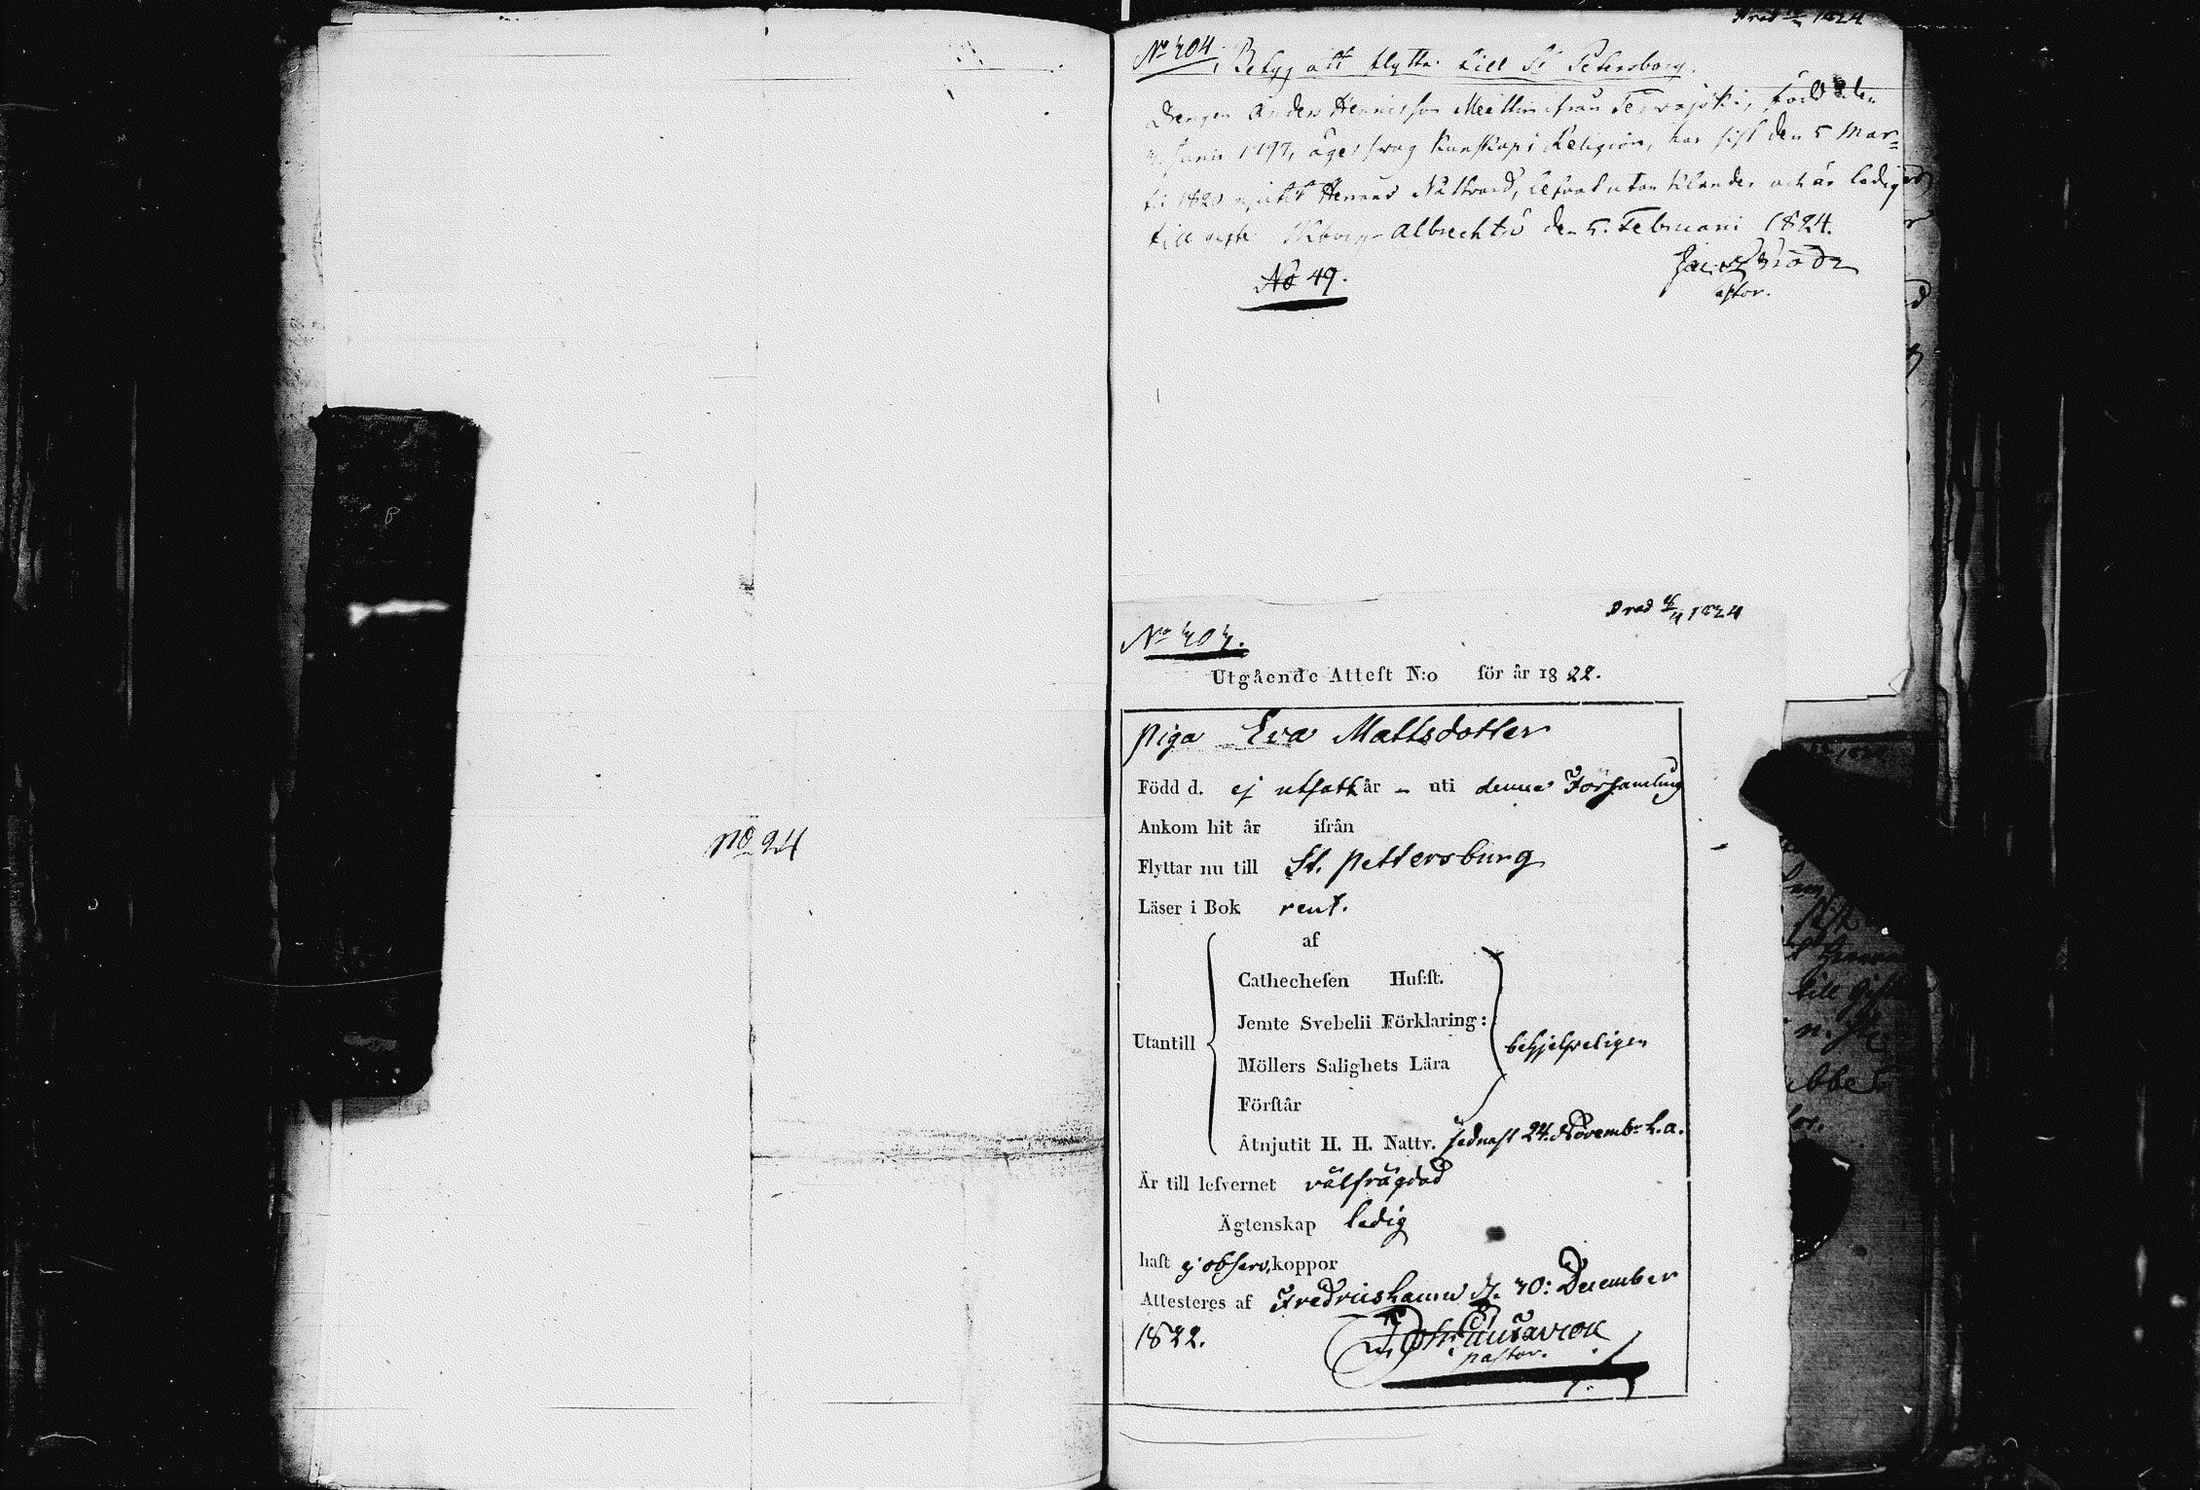 No 24
1824
No 404.
Betyg att flytta till St Petersborg.
Drengen Anders Henricsson Meittin ifrån Terrajoki, född den
Junii 1797, äger svag kunskap i Religion, har sist den 5 Mar=
ti 1820 njutit Herrans Nattvard, lefvat utan klander och är ledig
till ägte Albrechtsö den 5. Februarii 1824.
No 49.
1824
Utgående Attest N:o för år 1822.
Piga Eva Mattsdotter
Född d. ej utsatt år – uti denna Församling
Ankom hit år ifrån
Flyttar nu till St. Pettersburg
Läser i Bok rent.
af
Cathechesen Hus:st.
Jemte Svebelii Förklaring:
Utantill
behjelpeligen
Möllers Salighets Lära
Förstår
Åtnjutit H. H. Nattv. sednast 24. Novemb. h.a.
Är till lefvernet välfrägdad
Ägtenskap ledig
haft ej observ. koppor
Attesteres af Fredricshamn d. 30: December
1822.
Pastor.